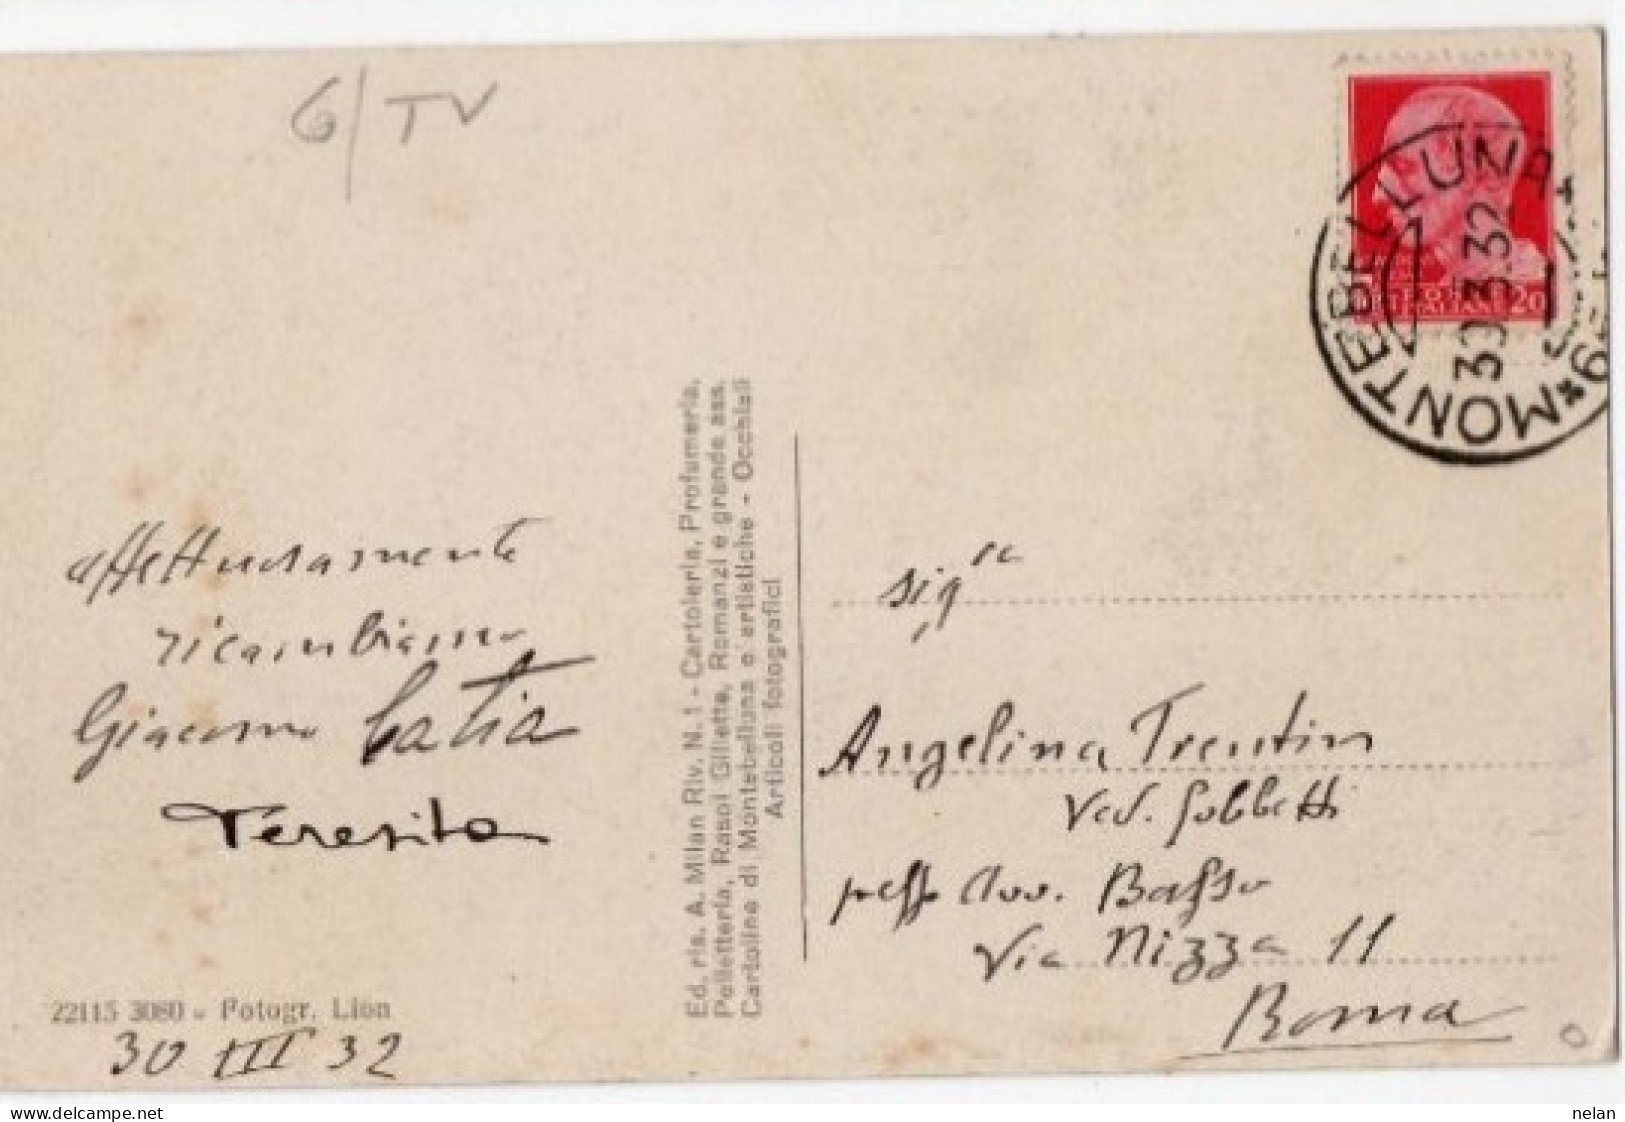 G/TV
MONTEBELLUNA
30.3.32
POSTE ITALIANE 20
affettuosamente
ricambiamo
Giacomo Catia
Teresita
22115 3080 - Fotogr. Lion
30 III 32
Ed. ris. A. Milan Riv. N. 1 - Cartoleria, Profumeria,
Pelletteria, Rasoi Gillette, Romanzi e grande ass.
Cartoline di Montebelluna e artistiche - Occhiali
Articoli fotografici
Sig.ra
Angelina Trentin
Ved. Gobbetti
presso Avv. Basso
Via Nizza 11
Roma
delcampe.net
nelan